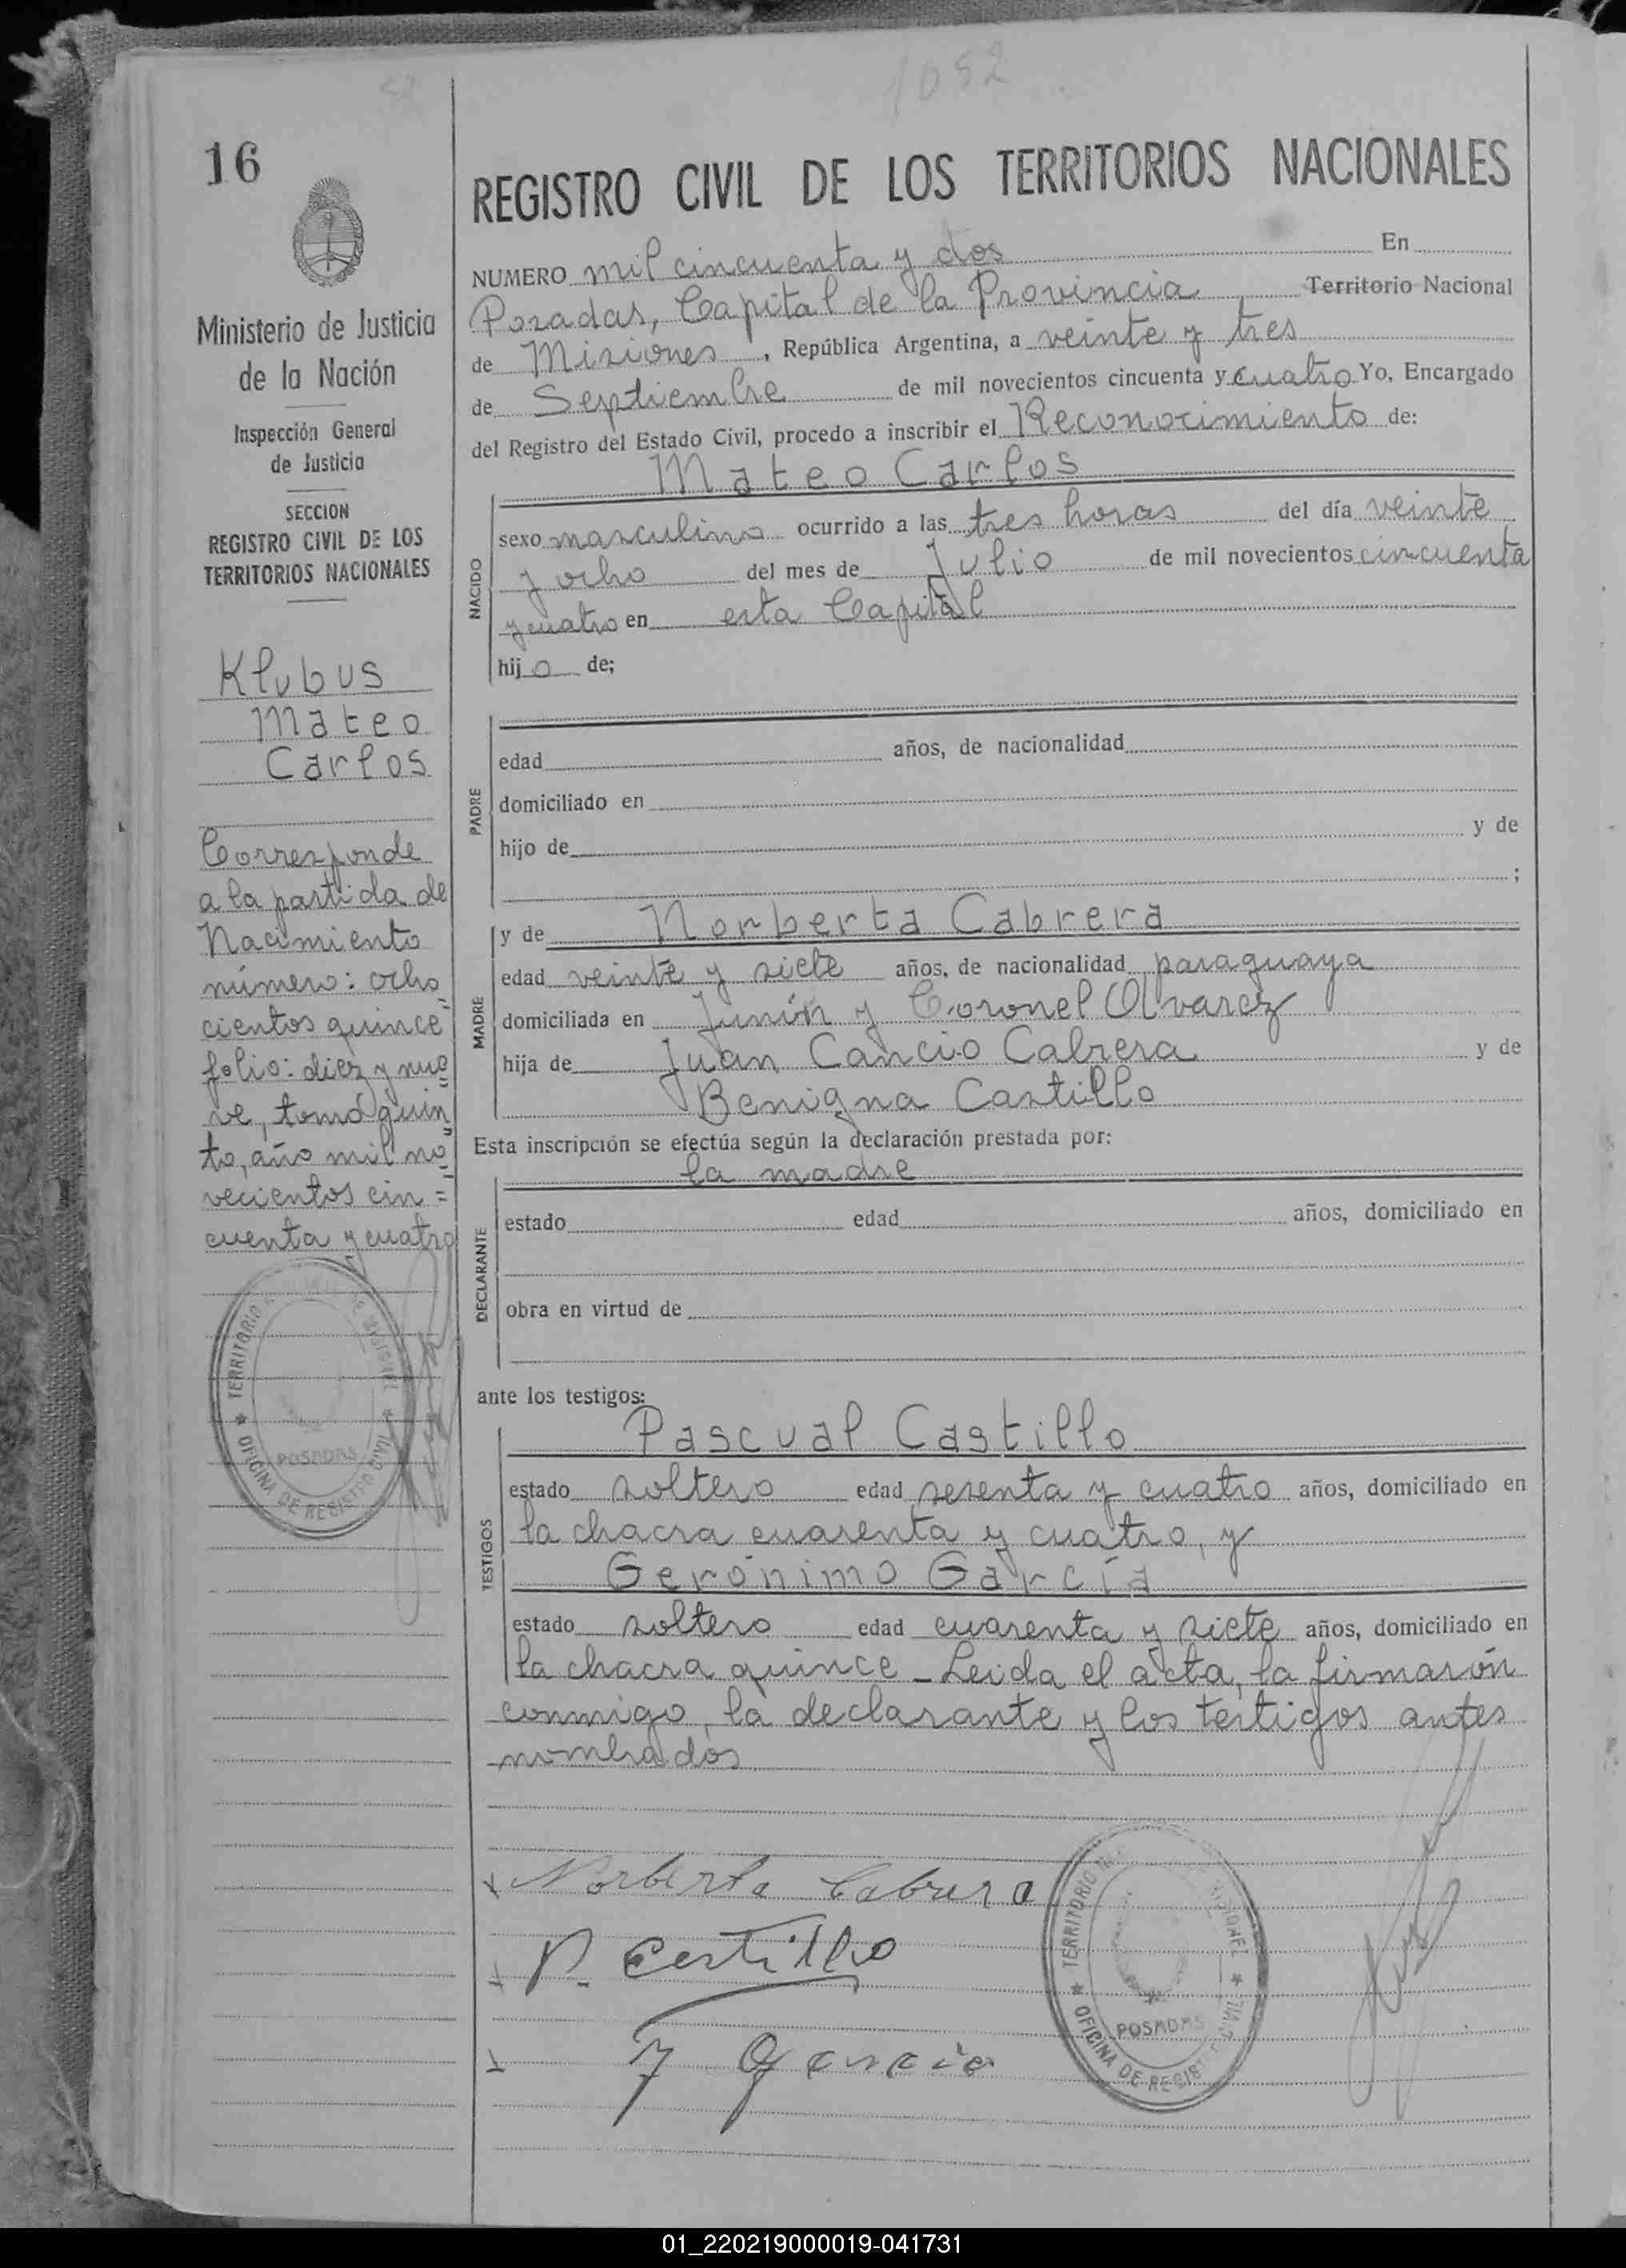 1052
16
REGISTRO CIVIL DE LOS TERRITORIOS NACIONALES
Ministerio de Justicia
de la Nación
Inspección General
de Justicia
SECCION
REGISTRO CIVIL DE LOS
TERRITORIOS NACIONALES
Klubus
Mateo
Carlos
Corresponde
a la partida de
Nacimiento
número: ocho
cientos quince
folio: diez y nue=
ve, tomo quin=
to, año mil no=
vecientos cin=
cuenta y cuatro
TERRITORIO
OFICINA DE REGISTRO CIVIL
POSADAS
NUMERO mil cincuenta y dos En
Posadas, Capital de la Provincia Territorio Nacional
de Misiones, República Argentina, a veinte y tres
de Septiembre de mil novecientos cincuenta y cuatro Yo, Encargado
del Registro del Estado Civil, procedo a inscribir el Reconocimiento de:
Mateo Carlos
NACIDO
sexo masculino ocurrido a las tres horas del día veinte
y ocho del mes de Julio de mil novecientos cincuenta
y cuatro en esta Capital
hijo de;
PADRE
edad años, de nacionalidad
domiciliado en
hijo de y de
;
MADRE
y de Norberta Cabrera
edad veinte y siete años, de nacionalidad paraguaya
domiciliada en Junín y Coronel Alvarez
hija de Juan Cancio Cabrera y de
Benigna Castillo
Esta inscripción se efectúa según la declaración prestada por:
la madre
DECLARANTE
estado edad años, domiciliado en
obra en virtud de
ante los testigos:
Pascual Castillo
TESTIGOS
estado soltero edad sesenta y cuatro años, domiciliado en
la chacra cuarenta y cuatro, y
Gerónimo García
estado soltero edad cuarenta y siete años, domiciliado en
la chacra quince - Leída el acta, la firmaron
conmigo, la declarante y los testigos antes
nombrados
Norberta Cabrera
P. Castillo
J Garcia
TERRITORIO
OFICINA DE REGIST CIVIL
POSADAS
01_220219000019-041731